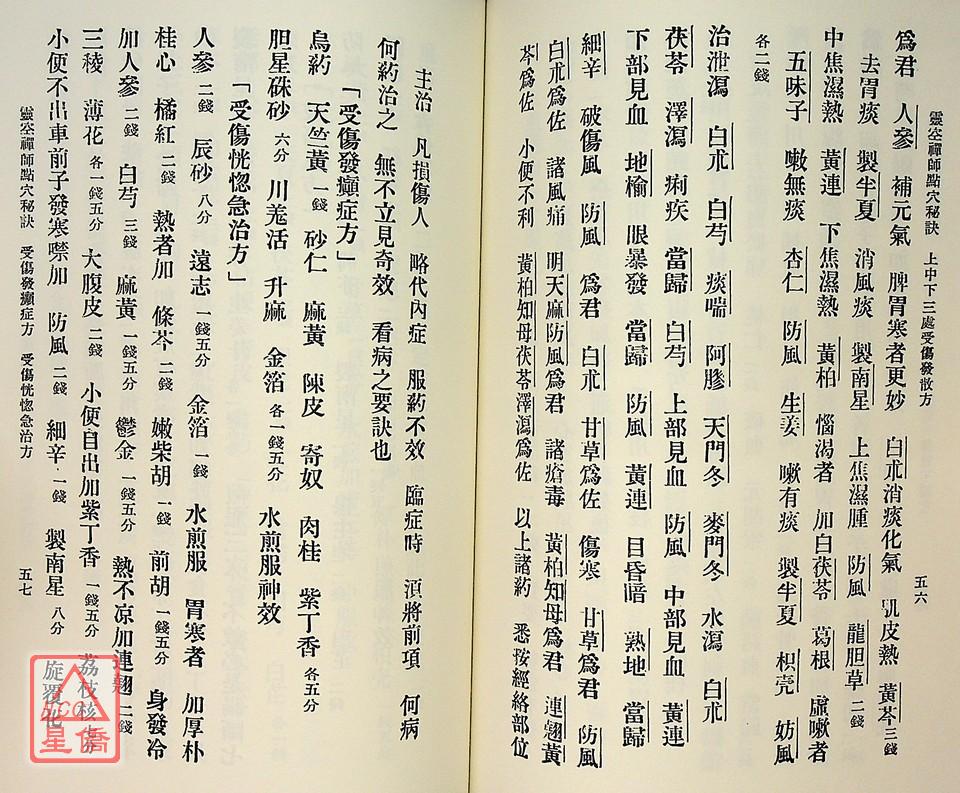 靈空禪師點穴秘訣　上中下三處受傷發散方　五六
為君　人參　補元氣　脾胃寒者更妙　白朮消痰化氣　肌皮熱　黃芩三錢
去胃痰　製半夏　消風痰　製南星　上焦濕腫　防風　龍胆草　二錢
中焦濕熱　黃連　下焦濕熱　黃柏　惱渴者　加白茯苓　葛根　虛嗽者
五味子　嗽無痰　杏仁　防風　生姜　嗽有痰　製半夏　枳壳　妨風
各二錢
治泄瀉　白朮　白芍　痰喘　阿膠　天門冬　麥門冬　水瀉　白朮
茯苓　澤瀉　痢疾　當歸　白芍　上部見血　防風　中部見血　黃連
下部見血　地榆　眼暴發　當歸　防風　黃連　目昏暗　熟地　當歸
細辛　破傷風　防風　為君　白朮　甘草為佐　傷寒　甘草為君　防風
白朮為佐　諸風痛　明天麻防風為君　諸瘡毒　黃柏知母為君　連翹黃
芩為佐　小便不利　黃柏知母茯苓澤瀉為佐　以上諸藥　悉按經絡部位
主治　凡損傷人　略代內症　服葯不效　臨症時　須將前項　何病
何葯治之　無不立見奇效　看病之要訣也
「受傷發癲症方」
烏葯　天竺黃　一錢　砂仁　麻黃　陳皮　寄奴　肉桂　紫丁香　各五分
胆星硃砂　六分　川羌活　升麻　金箔　各一錢五分　水煎服神效
「受傷恍惚急治方」
人參　二錢　辰砂　八分　遠志　一錢五分　金箔　一錢　水煎服　胃寒者　加厚朴
桂心　橘紅　二錢　熱者加　條芩　二錢　嫩柴胡　一錢　前胡　一錢五分　身發冷
加人參　二錢　白芍　三錢　麻黃　一錢五分　鬱金　一錢五分　熱不凉加連翹　二錢
三稜　薄花　各一錢五分　大腹皮　二錢　小便自出加紫丁香　一錢五分　荔枝核七分
小便不出車前子發寒噤加　防風　二錢　細辛　一錢　製南星　八分　旋覆花
靈空禪師點穴秘訣　受傷發癲症方　受傷恍惚急治方　五七
星僑